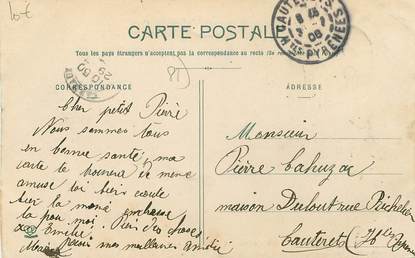 10 €
CARTE POSTALE
Tous les pays étrangers n'acceptent pas la correspondance au recto
CORRESPONDANCE
ADRESSE
CAUTERETS
Cher petit Pierre
Nous sommes tous
en bonne santé, ma
carte te trouvera de même
amuse toi bien écoute
bien ta mémé embrasse
la pour moi. Bien des choses
aux
mes meilleures amitiés
Monsieur
Pierre Cahuzac
maison Dulout rue Richelieu
Cauterets